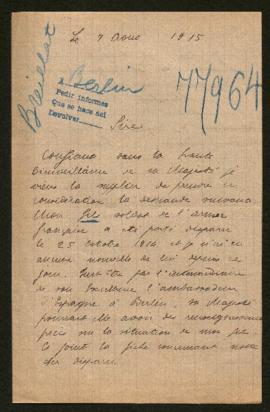 Le 7 Aout 1915
Breillat
a Berlin
77964
Pedir informes
Que se hace asi
Devolver
Sire
Confiant dans la haute
bienveillance de sa Majesté je
viens la supplier de prendre en
considération la demande suivante
Mon fils soldat de l'armée
française a été porté disparu
le 25 octobre 1914 et je n'ai eu
aucune nouvelle de lui depuis ce
jour. Peut-être par l'intermédiaire
de son Excellence l'ambassadeur
d'Espagne à Berlin, sa Majesté
pourrait elle avoir des renseignements
précis sur la situation de mon fils
Ci joint la fiche concernant notre
cher disparu